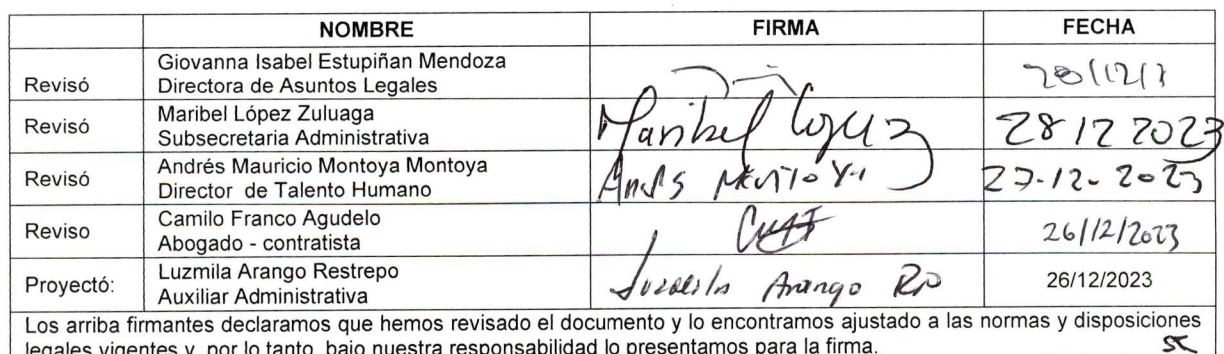 NOMBRE FIRMA FECHA
Giovanna Isabel Estupiñan Mendoza
Revisó Directora de Asuntos Legales 28/12/
Maribel López Zuluaga
Revisó Subsecretaria Administrativa Maribel López 28 12 2023
Andrés Mauricio Montoya Montoya
Revisó Director de Talento Humano Andrés Montoya 27-12-2023
Camilo Franco Agudelo
Reviso Abogado - contratista 26/12/2023
Luzmila Arango Restrepo
Proyectó: Auxiliar Administrativa Luzmila Arango 26/12/2023
Los arriba firmantes declaramos que hemos revisado el documento y lo encontramos ajustado a las normas y disposiciones
legales vigentes y, por lo tanto, bajo nuestra responsabilidad lo presentamos para la firma.